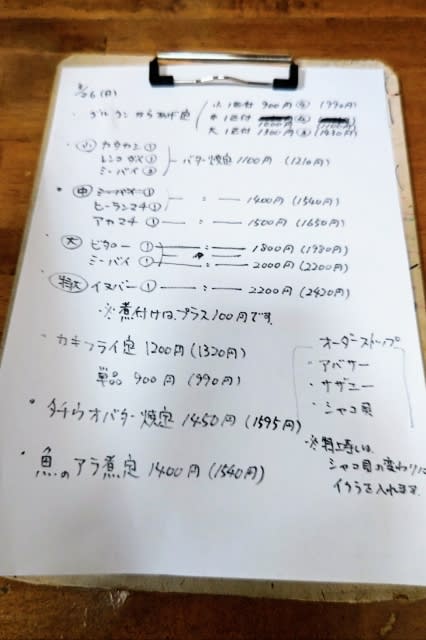 26(月)
・グルクンからあげ定 小 1匹付 900円 (990円)
中 1匹付
大 1匹付 1300円 (1430円)
・小 カタカシ①
レンコダイ① バター焼定 1100円 (1210円)
ミーバイ②
・中 ミーバイ①
ヒーランマチ① 〃 1400円 (1540円)
アカマチ① 〃 1500円 (1650円)
・大 ビタロー① 〃 1800円 (1980円)
ミーバイ① 〃 2000円 (2200円)
・特大 イヌバー① 〃 2200円 (2420円)
・※煮付けは、プラス100円です。
・カキフライ定 1200円 (1320円)
単品 900円 (990円)
・タチウオバター焼定 1450円 (1595円)
・魚のアラ煮定 1400円 (1540円)
オーダーストップ
・アバサー
・サザエ
・シャコ貝
・※特上寿しは、
シャコ貝の変わりに
イクラを入れます。